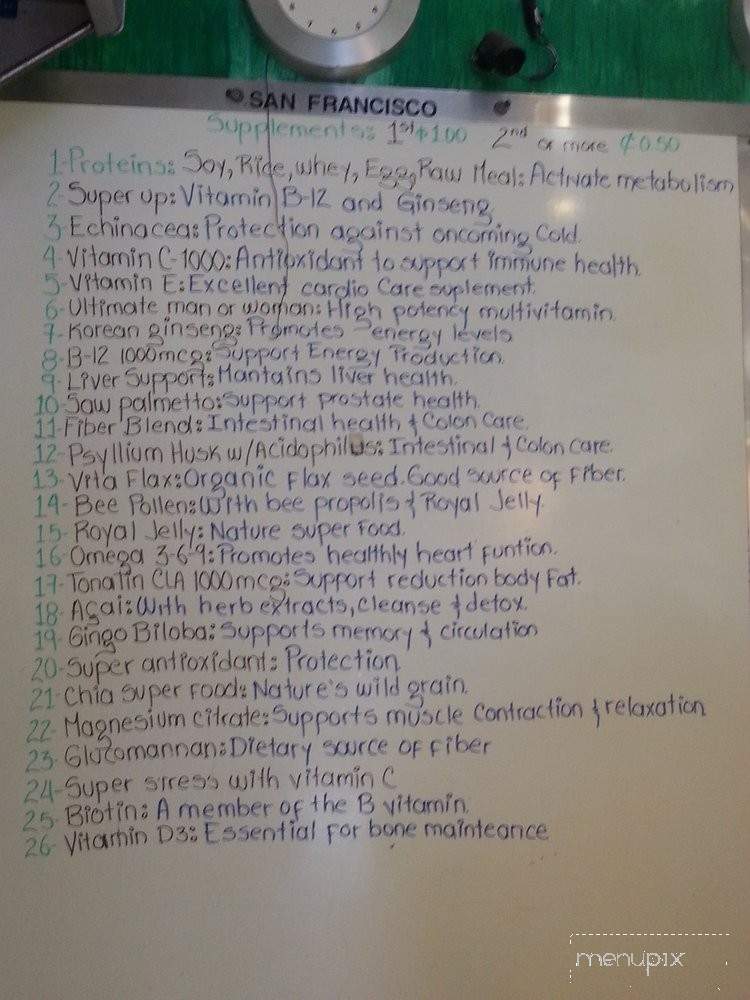 SAN FRANCISCO
Supplements: 1st $1.00 2nd or more ¢0.50
1-Proteins: Soy, Rice, whey, Egg, Raw Meal: Activate metabolism
2-Super up: Vitamin B-12 and Ginseng
3-Echinacea: Protection against oncoming Cold.
4-Vitamin C-1000: Antioxidant to support immune health.
5-Vitamin E: Excellent cardio Care suplement.
6-Ultimate man or woman: High potency multivitamin.
7-Korean ginseng: Promotes energy levels
8-B-12 1000mcg: Support Energy Production.
9-Liver Support: Mantains liver health.
10-Saw palmetto: Support prostate health.
11-Fiber Blend: Intestinal health & Colon Care.
12-Psyllium Husk w/Acidophilus: Intestinal & Colon Care.
13-Vita Flax: Organic Flax seed. Good source of Fiber.
14-Bee Pollen: With bee propolis & Royal Jelly.
15-Royal Jelly: Nature super Food.
16-Omega 3-6-9: Promotes healthly heart funtion.
17-Tonalin CLA 1000mcg: Support reduction body Fat.
18-Açai: With herb extracts, cleanse & detox.
19-Gingo Biloba: Supports memory & circulation
20-Super antioxidant: Protection
21-Chia super Food: Nature's wild grain.
22-Magnesium Citrate: Supports muscle Contraction & relaxation
23-Glucomannan: Dietary source of fiber
24-Super stress with vitamin C
25-Biotin: A member of the B vitamin.
26-Vitamin D3: Essential for bone mainteance
menupix